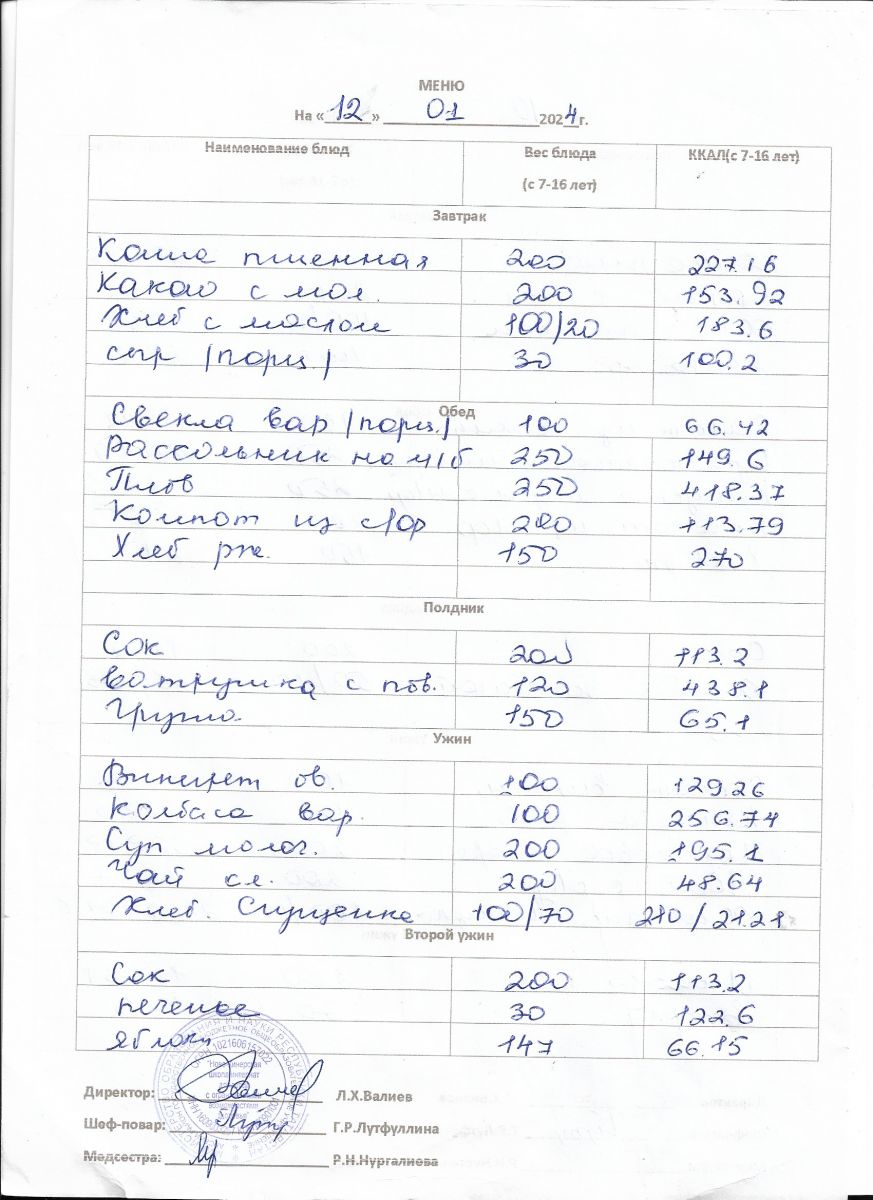 МЕНЮ
На «12» 01 2024г.
Наименование блюд Вес блюда (с 7-16 лет) ККАЛ(с 7-16 лет)
Завтрак
Каша пшенная 200 227.16
Какао с мол. 200 153.92
Хлеб с маслом 100/20 183.6
сыр /порц./ 30 100.2
Обед
Свекла вар /порц./ 100 66.42
Рассольник на м/б 250 149.6
Плов 250 418.37
Компот из с/фр 200 113.79
Хлеб рж. 150 270
Полдник
Сок 200 113.2
Ватрушка с пов. 120 438.1
Груша 150 65.1
Ужин
Винегрет ов. 100 129.26
Колбаса вар. 100 256.74
Суп молоч. 200 195.1
Чай сл. 200 48.64
Хлеб. Сгущенка 100/70 210/21.21
Второй ужин
Сок 200 113.2
печенье 30 122.6
яблоки 147 66.15
Директор: Л.Х.Валиев
Шеф-повар: Г.Р.Лутфуллина
Медсестра: Р.Н.Нургалиева